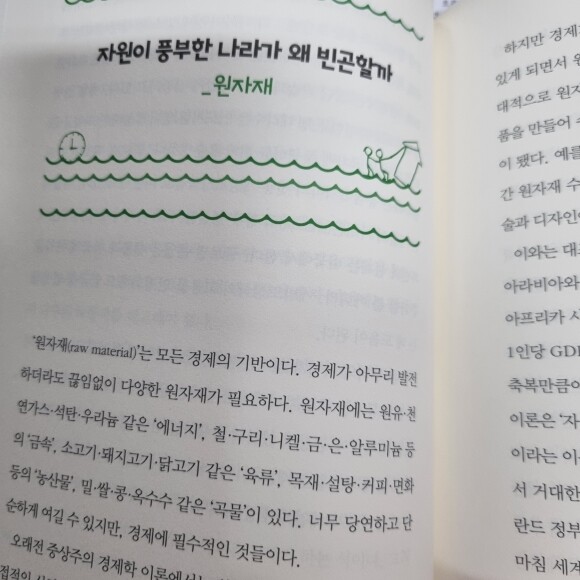 자원이 풍부한 나라가 왜 빈곤할까
_원자재
'원자재(raw material)'는 모든 경제의 기반이다. 경제가 아무리 발전
하더라도 끊임없이 다양한 원자재가 필요하다. 원자재에는 원유·천
연가스·석탄·우라늄 같은 '에너지', 철·구리·니켈·금·은·알루미늄 등
의 '금속', 소고기·돼지고기·닭고기 같은 '육류', 목재·설탕·커피·면화
등의 '농산물', 밀·쌀·콩·옥수수 같은 '곡물'이 있다. 너무 당연하고 단
순하게 여길 수 있지만, 경제에 필수적인 것들이다.
오래전 중상주의 경제학 이론에서는
하지만 경제
있게 되면서 원
대적으로 원자
품을 만들어 수
이 됐다. 예를
간 원자재 수
술과 디자인
이와는 대조
아라비아와
아프리카 사
1인당 GDP
축복만큼이
이론은 '자
이라는 이
서 거대한
란드 정부
마침 세계